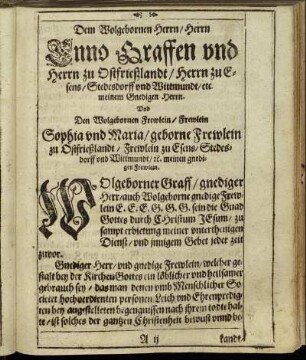 Dem Wolgebornen Herrn/ Herrn
Enno Graffen vnd
Herrn zu Ostfrießlandt/ Herrn zu E-
sens/ Stedesdorff vnd Wittmundt/ etc.
meinem Gnedigen Herrn.
Vnd
Den Wolgebornen Frewlein/ Frewlein
Sophia vnd Maria/ geborne Frewlein
zu Ostfrießlandt/ Frewlein zu Esens/ Stedes-
dorff vnd Wittmundt/ ꝛc. meinen gnedi-
gen Frewlein.
WOlgeborner Graff/ gnediger
Herr/ auch Wolgeborne gnedige Frew-
lein E. E. E. G. G. G. sein die Gnad
Gottes durch CHristum JEsum/ zu
sampt erbietung meiner vnterthenigen
Dienst/ vnd jnnigem Gebet jeder zeit
zuvor.
Gnediger Herr/ vnd gnedige Frewlein/ welcher ge-
stalt bey der Kirchen Gottes ein löblicher vnd heilsamer
gebrauch sey/ das man denen vmb Menschlicher So-
cietet hochverdienten personen Leich vnd Ehrenpredig-
ten bey angestelleten begengnissen nach ihrem tode hal-
te/ ist solches der gantzen Christenheit bewust vnnd be-
A ij
kandt/